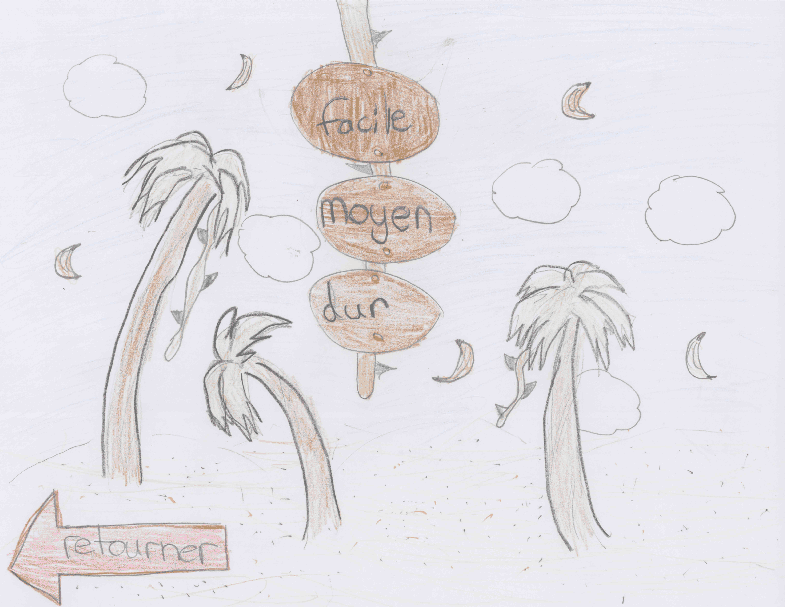 facile
moyen
dur
retourner